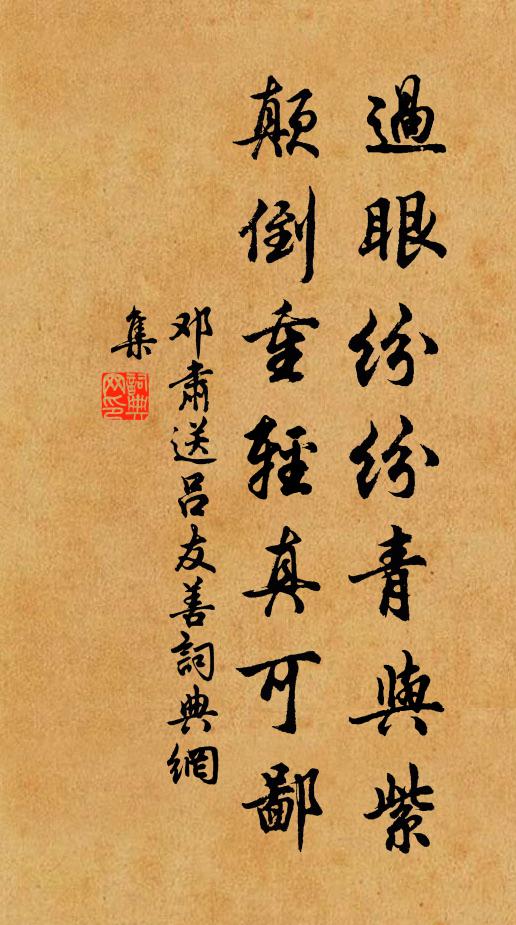 過眼紛紛青與紫
顛倒重輕真可鄙
邓肅送呂友善詞典網
集
詞典
网印